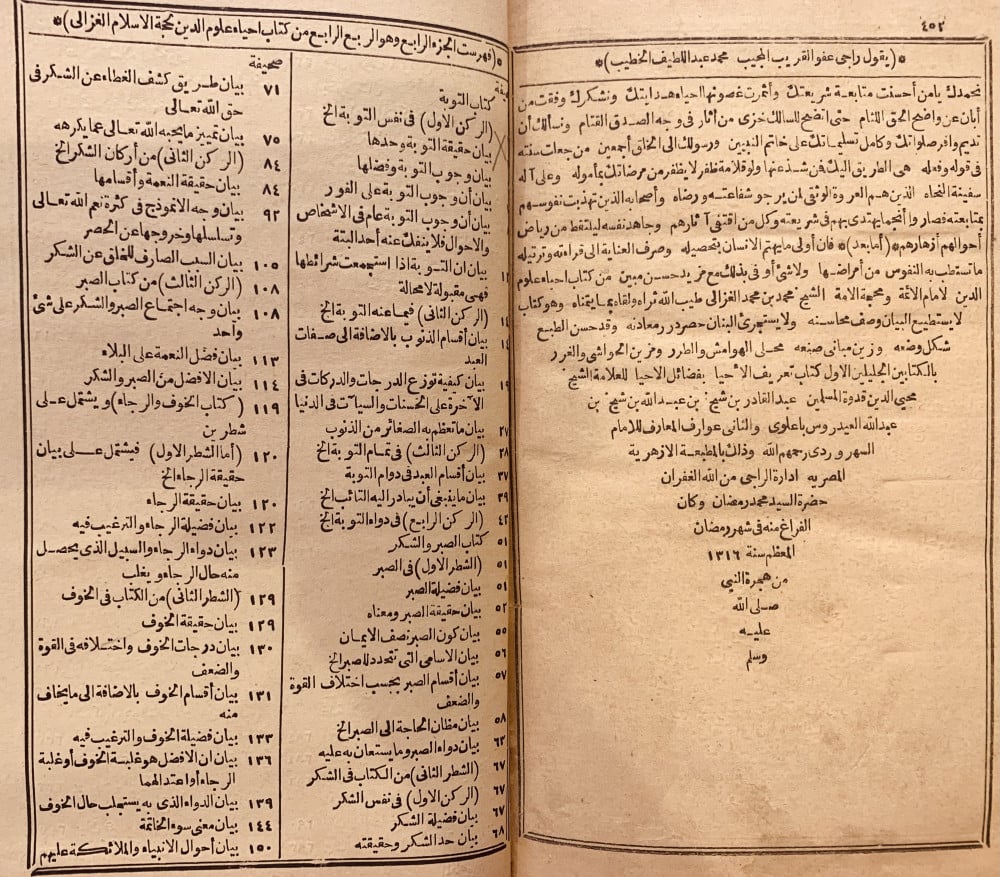 ٤٥٢
*(يقول راجى عفو القريب المجيب محمد عبد اللطيف الخطيب)*
نحمدك يا من أحسنت متابعة شريعتك وأثمرت غصونها احياء هدايتك ونشكرك وفقت من
أبان عن واضح الحق اللثام حتى اتضح للسالك خزى من أثار فى وجه الصدق القتام ونسألك أن
تديم وافر صلواتك وكامل تسليماتك على خاتم النبيين ورسولك الى الخلق أجمعين من جعات سنته
فى قوله وفعله هى الطريق اليك فن شذ عنها ولو قلامة ظفر لا يظفر من مرضاتك بمأموله وعلى آله
سفينة النجاه الذين هم العروة الوثقى لمن يرجو شفاعته ورضاه وأصحابه الذين تهذبت نفوسهم
بمتابعته فصاروا أنجما يهتدى بهم فى شريعته وكل من اقتفى آثارهم وجاهد نفسه ليلتقط من رياض
أحوالهم أزهارهم *(أما بعد)* فان أولى ما يهتم الانسان بتحصيله وصرف العناية الى قراءته وترتيله
ما تستطب به النفوس من أمراضها ولا شئ أوفى بذلك مع مزيد حسن مبين من كتاب احياء علوم
الدين لامام الأئمة وحجة الامة الشيخ محمد بن محمد الغزالى طيب الله ثراه ولقاه بما يتمناه وهو كتاب
لا يستطيع البيان وصف محاسنه ولا يستجرئ البنان حصر درر معادنه وقد حسن الطبع
شكل وضعه وزين مبانى صنعه محلى الهوامش والطرر ومزين الحواشى والغرر
بالكتابين الجليلين الاول كتاب تعريف الأحيا بفضائل الاحيا للعلامة الشيخ
محيى الدين قدوة المسلمين عبد القادر بن شيخ بن عبد الله بن شيخ بن
عبد الله العيدروس باعلوى والثانى عوارف المعارف للامام
السهروردى رحمهم الله وذلك بالمطبعة الازهرية
المصريه ادارة الراجى من الله الغفران
حضرة السيد محمد رمضان وكان
الفراغ منه فى شهر رمضان
المعظم سنة ١٣١٦
من هجرة النبى
صلى الله
عليه
وسلم
*(فهرست الجزء الرابع وهو الربع الرابع من كتاب احياء علوم الدين لحجة الاسلام الغزالى)*
كتاب التوبة
(الركن الاول) فى نفس التوبة الخ
بيان حقيقة التوبة وحدها
بيان وجوب التوبة وفضلها
بيان أن وجوب التوبة على الفور
بيان أن وجوب التوبة عام فى الاشخاص
والاحوال فلا ينفك عنه أحد البتة
بيان ان التوبة اذا استجمعت شرائطها
فهى مقبولة لا محالة
(الركن الثانى) فيما عنه التوبة الخ
بيان أقسام الذنوب بالاضافة الى صفات
العبد
بيان كيفية توزع الدرجات والدركات فى
الآخرة على الحسنات والسيآت فى الدنيا
٢٧ بيان ما تعظم به الصغائر من الذنوب
٢٨ (الركن الثالث) فى تمام التوبة الخ
٣٧ بيان أقسام العبد فى دوام التوبة
٣٩ بيان ما ينبغى أن يبادر اليه التائب الخ
٤٢ (الركن الرابع) فى دواء التوبة الخ
٥١ كتاب الصبر والشكر
٥١ (الشطر الاول) فى الصبر
٥١ بيان فضيلة الصبر
٥٢ بيان حقيقة الصبر ومعناه
٥٥ بيان كون الصبر نصف الايمان
٥٦ بيان الاسامى التى تتجدد للصبر الخ
٥٧ بيان أقسام الصبر بحسب اختلاف القوة
والضعف
٥٨ بيان مظان الحاجة الى الصبر الخ
٦٣ بيان دواء الصبر وما يستعان به عليه
٦٧ (الشطر الثانى) من الكتاب فى الشكر
٦٧ (الركن الاول) فى نفس الشكر
٦٧ بيان فضيلة الشكر
٦٨ بيان حد الشكر وحقيقته
صحيفة
٧١ بيان طريق كشف الغطاء عن الشكر فى
حق الله تعالى
٧٥ بيان تمييز ما يحبه الله تعالى عما يكرهه
٨٤ (الركن الثانى) من أركان الشكر الخ
٨٤ بيان حقيقة النعمة وأقسامها
٩٢ بيان وجه الانموذج فى كثرة نعم الله تعالى
وتسلسلها وخروجها عن الحصر
١٠٥ بيان السبب الصارف للخلق عن الشكر
١٠٨ (الركن الثالث) من كتاب الصبر
١٠٨ بيان وجه اجتماع الصبر والشكر على شئ
واحد
١١٣ بيان فضل النعمة على البلاء
١١٤ بيان الافضل من الصبر والشكر
١١٩ (كتاب الخوف والرجاء) ويشتمل على
شطرين
١٢٠ (أما الشطر الاول) فيشتمل على بيان
حقيقة الرجاء الخ
١٢٠ بيان حقيقة الرجاء
١٢٢ بيان فضيلة الرجاء والترغيب فيه
١٢٣ بيان دواء الرجاء والسبيل الذى يحصل
منه حال الرجاء ويغلب
١٢٩ (الشطر الثانى) من الكتاب فى الخوف
١٢٩ بيان حقيقة الخوف
١٣٠ بيان درجات الخوف واختلافه فى القوة
والضعف
١٣١ بيان أقسام الخوف بالاضافة الى ما يخاف
منه
١٣٣ بيان فضيلة الخوف والترغيب فيه
١٣٦ بيان ان الافضل هو غلبة الخوف أو غلبة
الرجاء أو اعتدالهما
١٣٩ بيان الدواء الذى به يستجلب حال الخوف
١٤٤ بيان معنى سوء الخاتمة
١٥٠ بيان أحوال الانبياء والملائكة عليهم